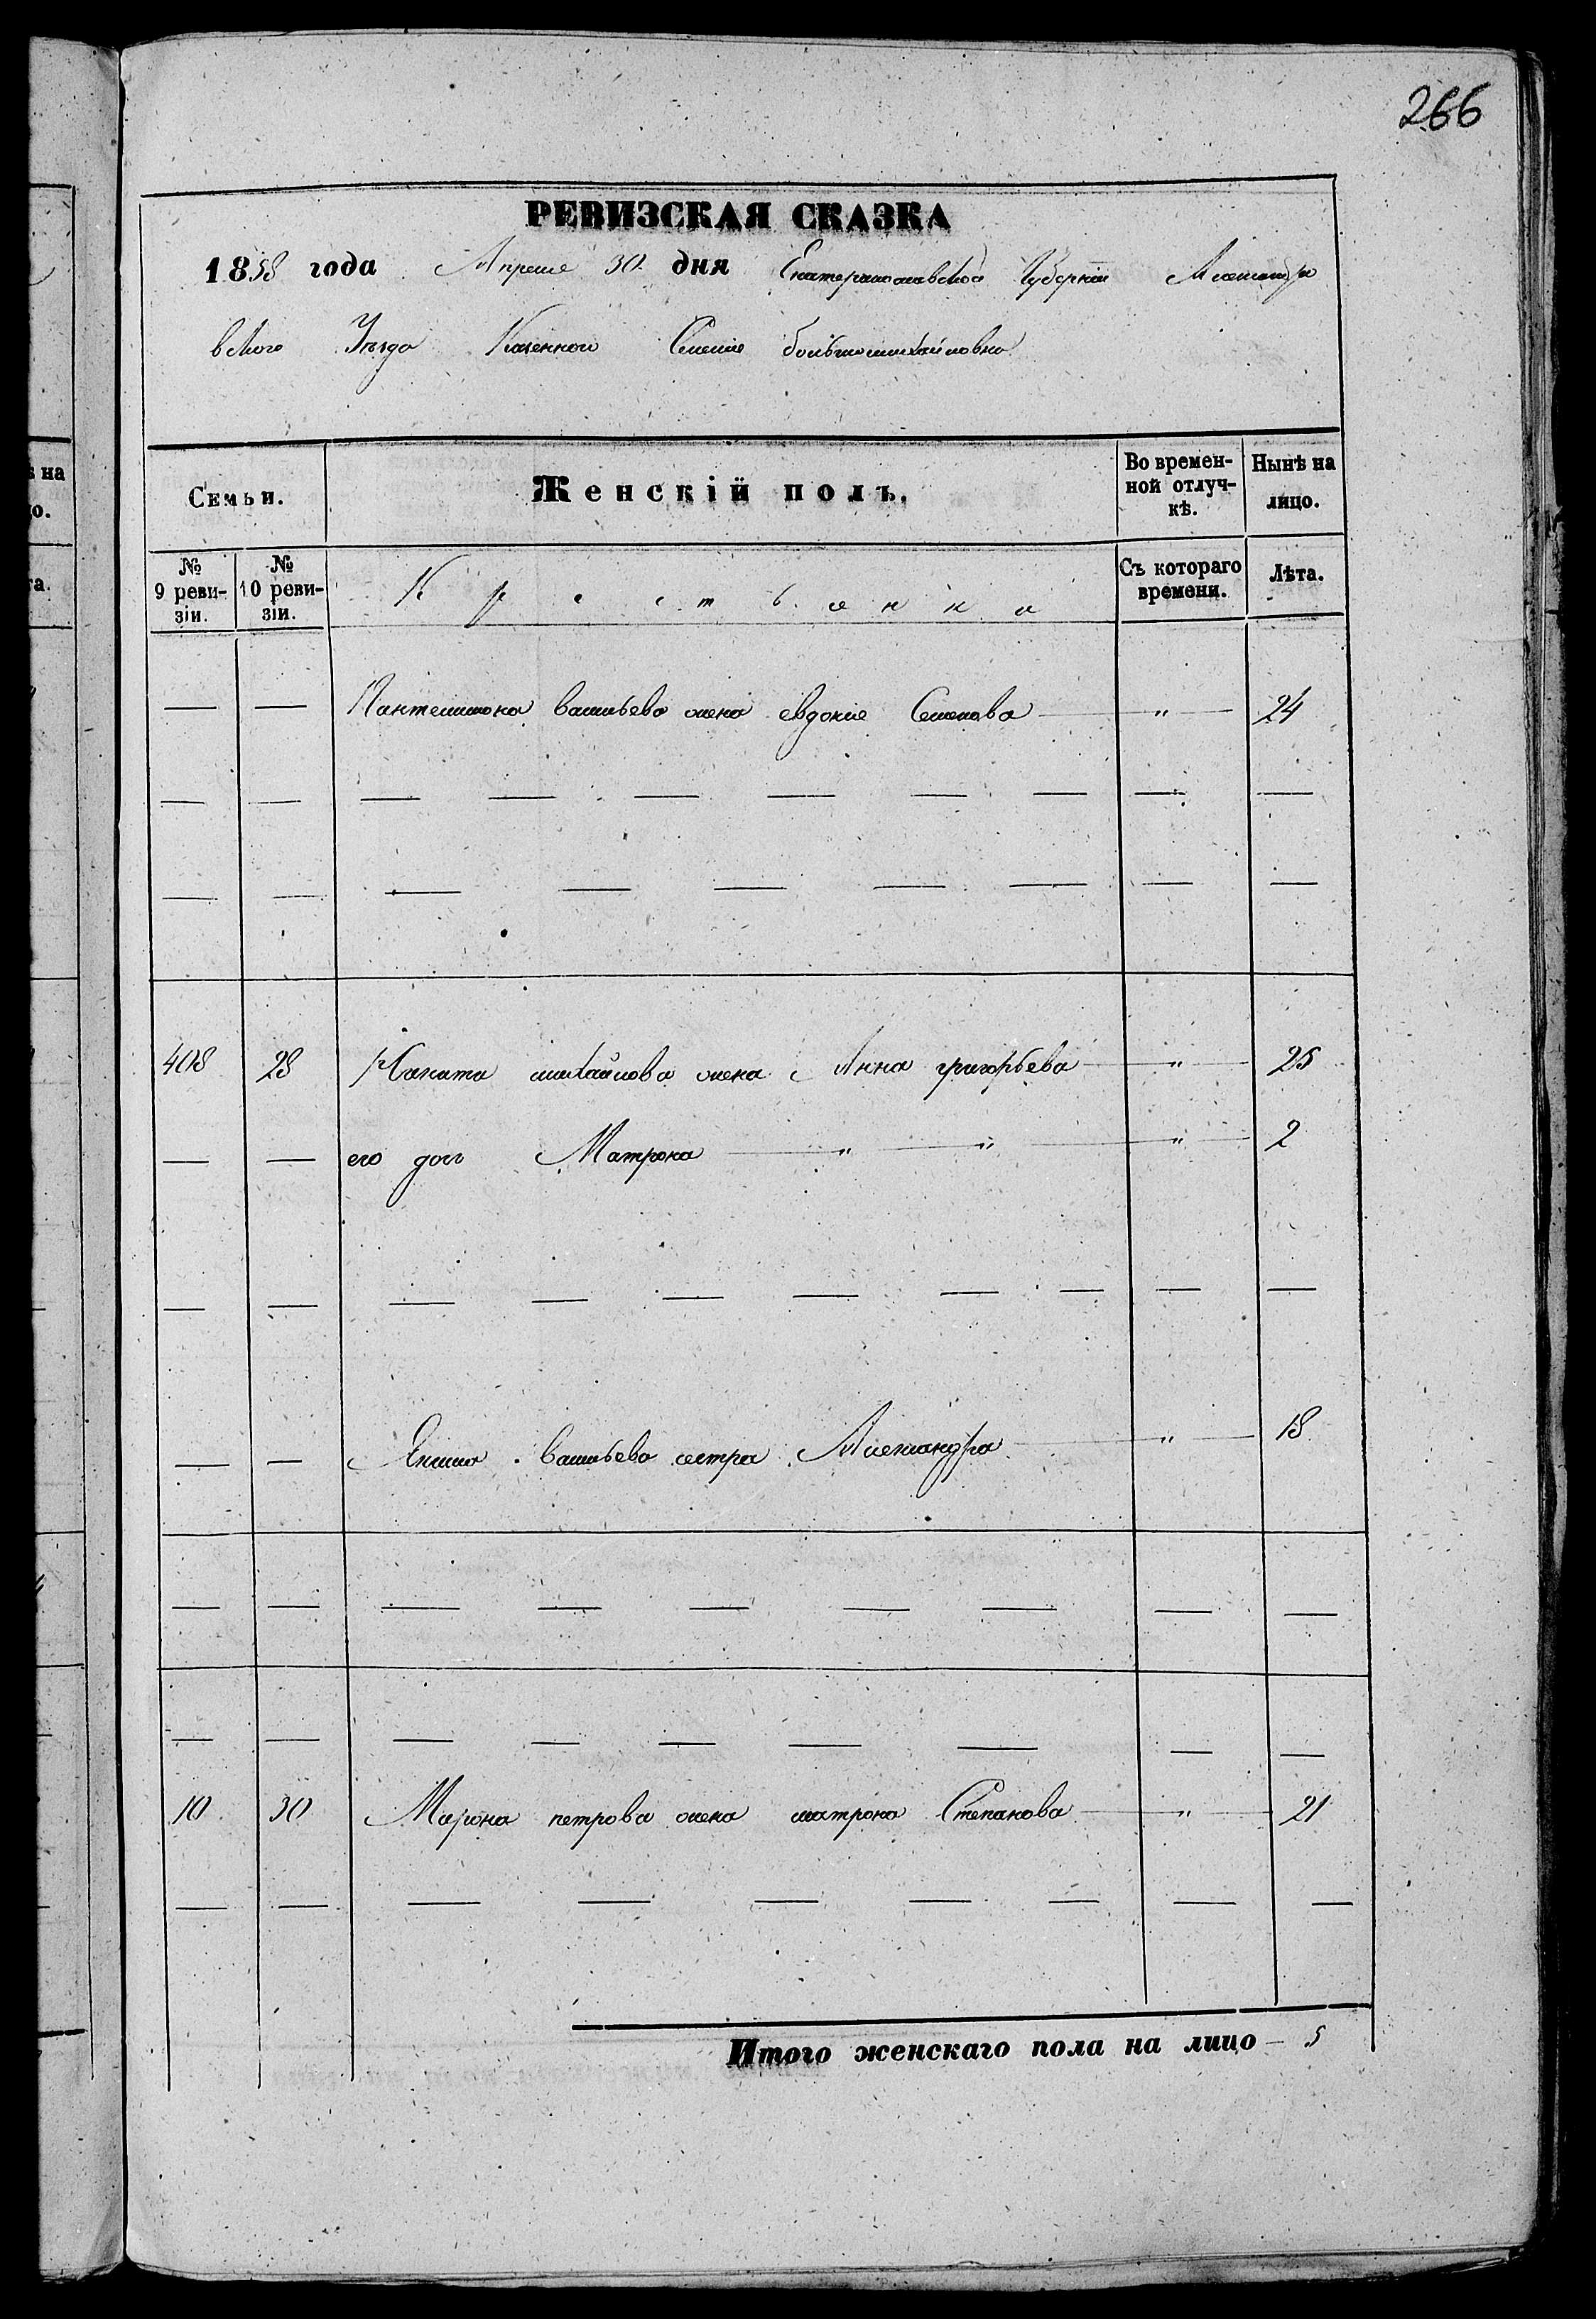 266
РЕВИЗСКАЯ СКАЗКА
1858 года Апреле 30 дня Екатеринославской Губернiи Александро
вского Уезда Казенного Селение большемихайловка
ѣ на
о.
та.
Семьи.
Женскiй полъ.
Во времен-
ной отлуч-
кѣ.
Нынѣ на
лицо.
№
9 реви-
зiи.
№
10 реви-
зiи.
Съ котораго
времени.
Лѣта.
— — Пантелимона васильева жена евдокие Семенова — " — 24
— — — — — — — — — —
— — — — — — — — —
408 28 михайлова жена Анна григорьева — " — 25
— — его доч Матрона — " — " — " — 2
— — — — — — — — — —
— — васильева сестра Александра — " — 18
— — — — — — — — —
— — — — — — — — —
10 30 петрова жена матрона Степанова — " — 21
— — — — — — — — —
Итого женскаго пола на лицо — 5